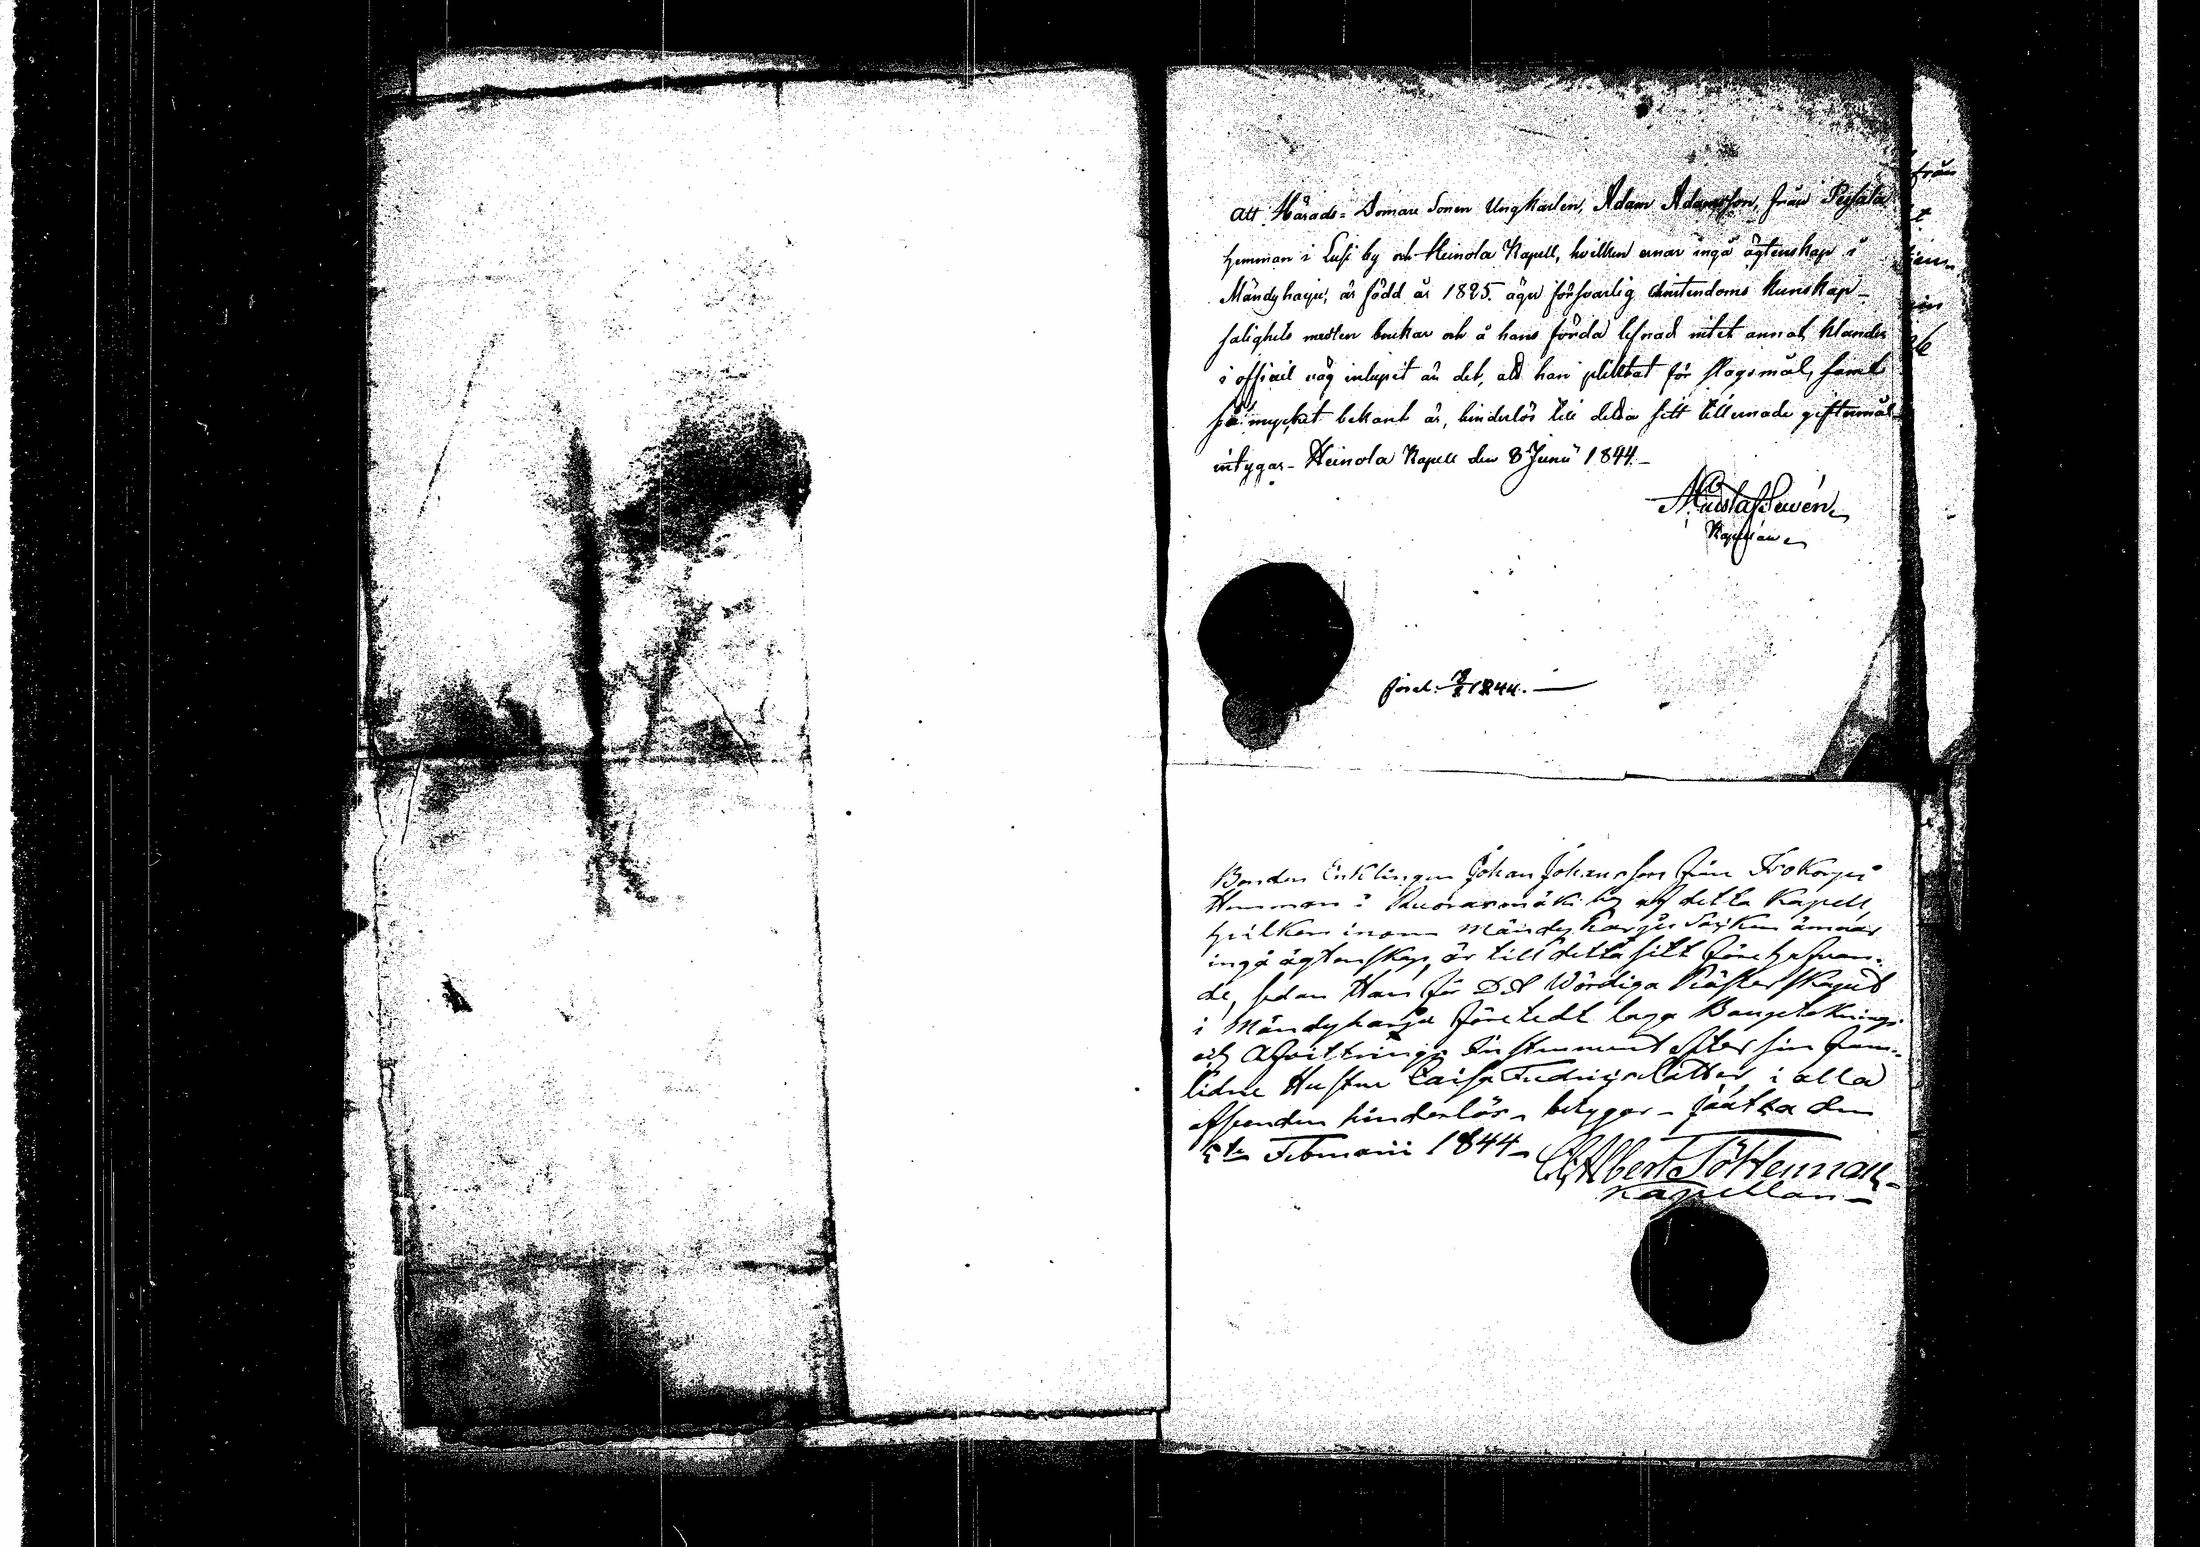 Att Härads-Domare Sonen Ungkarlen, Adam Adamsson, från Pejsala
hemman i Lusi by och Heinola Kapell, hvilken ernar ingå ägtenskap i
Mändyharju, är född år 1825. äger försvarlig christendoms kunskap-
salighets medlen brukar och å hans förda lefnad intet annat klander
i officiel väg inlupit än det, att han pliktat för slagsmål, samt
så mycket bekant är, hinderlös till detta sitt tillernade giftermål
intygar- Heinola Kapell den 8 Junii 1844.-
Kapellan
1844.
Bonden Enklingen Johan Johansson från
Hemman i Kuorasmäki by af detta Kapell,
hvilken inom Mändyharju Socken ämnar
ingå ägtenskap, är till detta sitt förehafvan-
de, sedan Han för Det Wördiga Prästerskapet
i Mändyharju företedt laga Bouptecknings
och Afvittrings Instrument efter sin fram-
lidne Hustru Caisa Fredricsdotter, i alla
afseenden hinderlös - betygar - Jäätka den
5te Februarii 1844-
Albert Pöttenman
Kapellan-
från